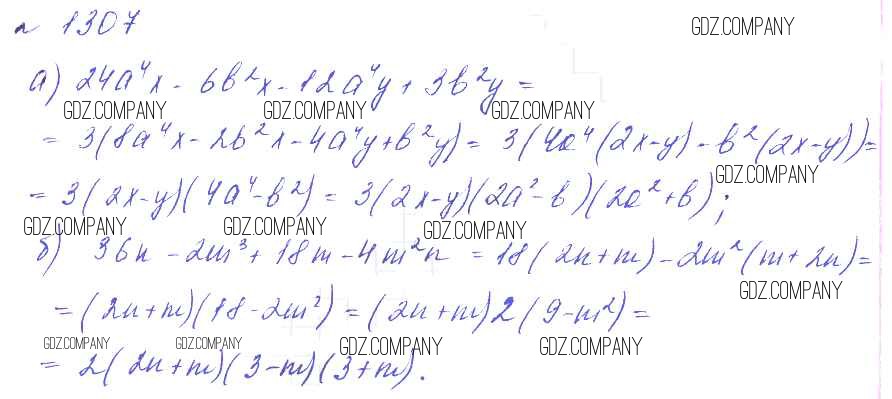 № 1307
GDZ.COMPANY
а) 24a⁴x - 6b²x - 12a⁴y + 3b²y =
GDZ.COMPANY GDZ.COMPANY GDZ.COMPANY
= 3(8a⁴x - 2b²x - 4a⁴y + b²y) = 3(4a⁴(2x-y) - b²(2x-y)) =
GDZ.COMPANY
= 3(2x-y)(4a⁴-b²) = 3(2x-y)(2a²-b)(2a²+b);
GDZ.COMPANY GDZ.COMPANY GDZ.COMPANY
б) 36n - 2m³ + 18m - 4m²n = 18(2n+m) - 2m²(m+2n) =
GDZ.COMPANY
= (2n+m)(18-2m²) = (2n+m)2(9-m²) =
GDZ.COMPANY GDZ.COMPANY GDZ.COMPANY GDZ.COMPANY
= 2(2n+m)(3-m)(3+m).